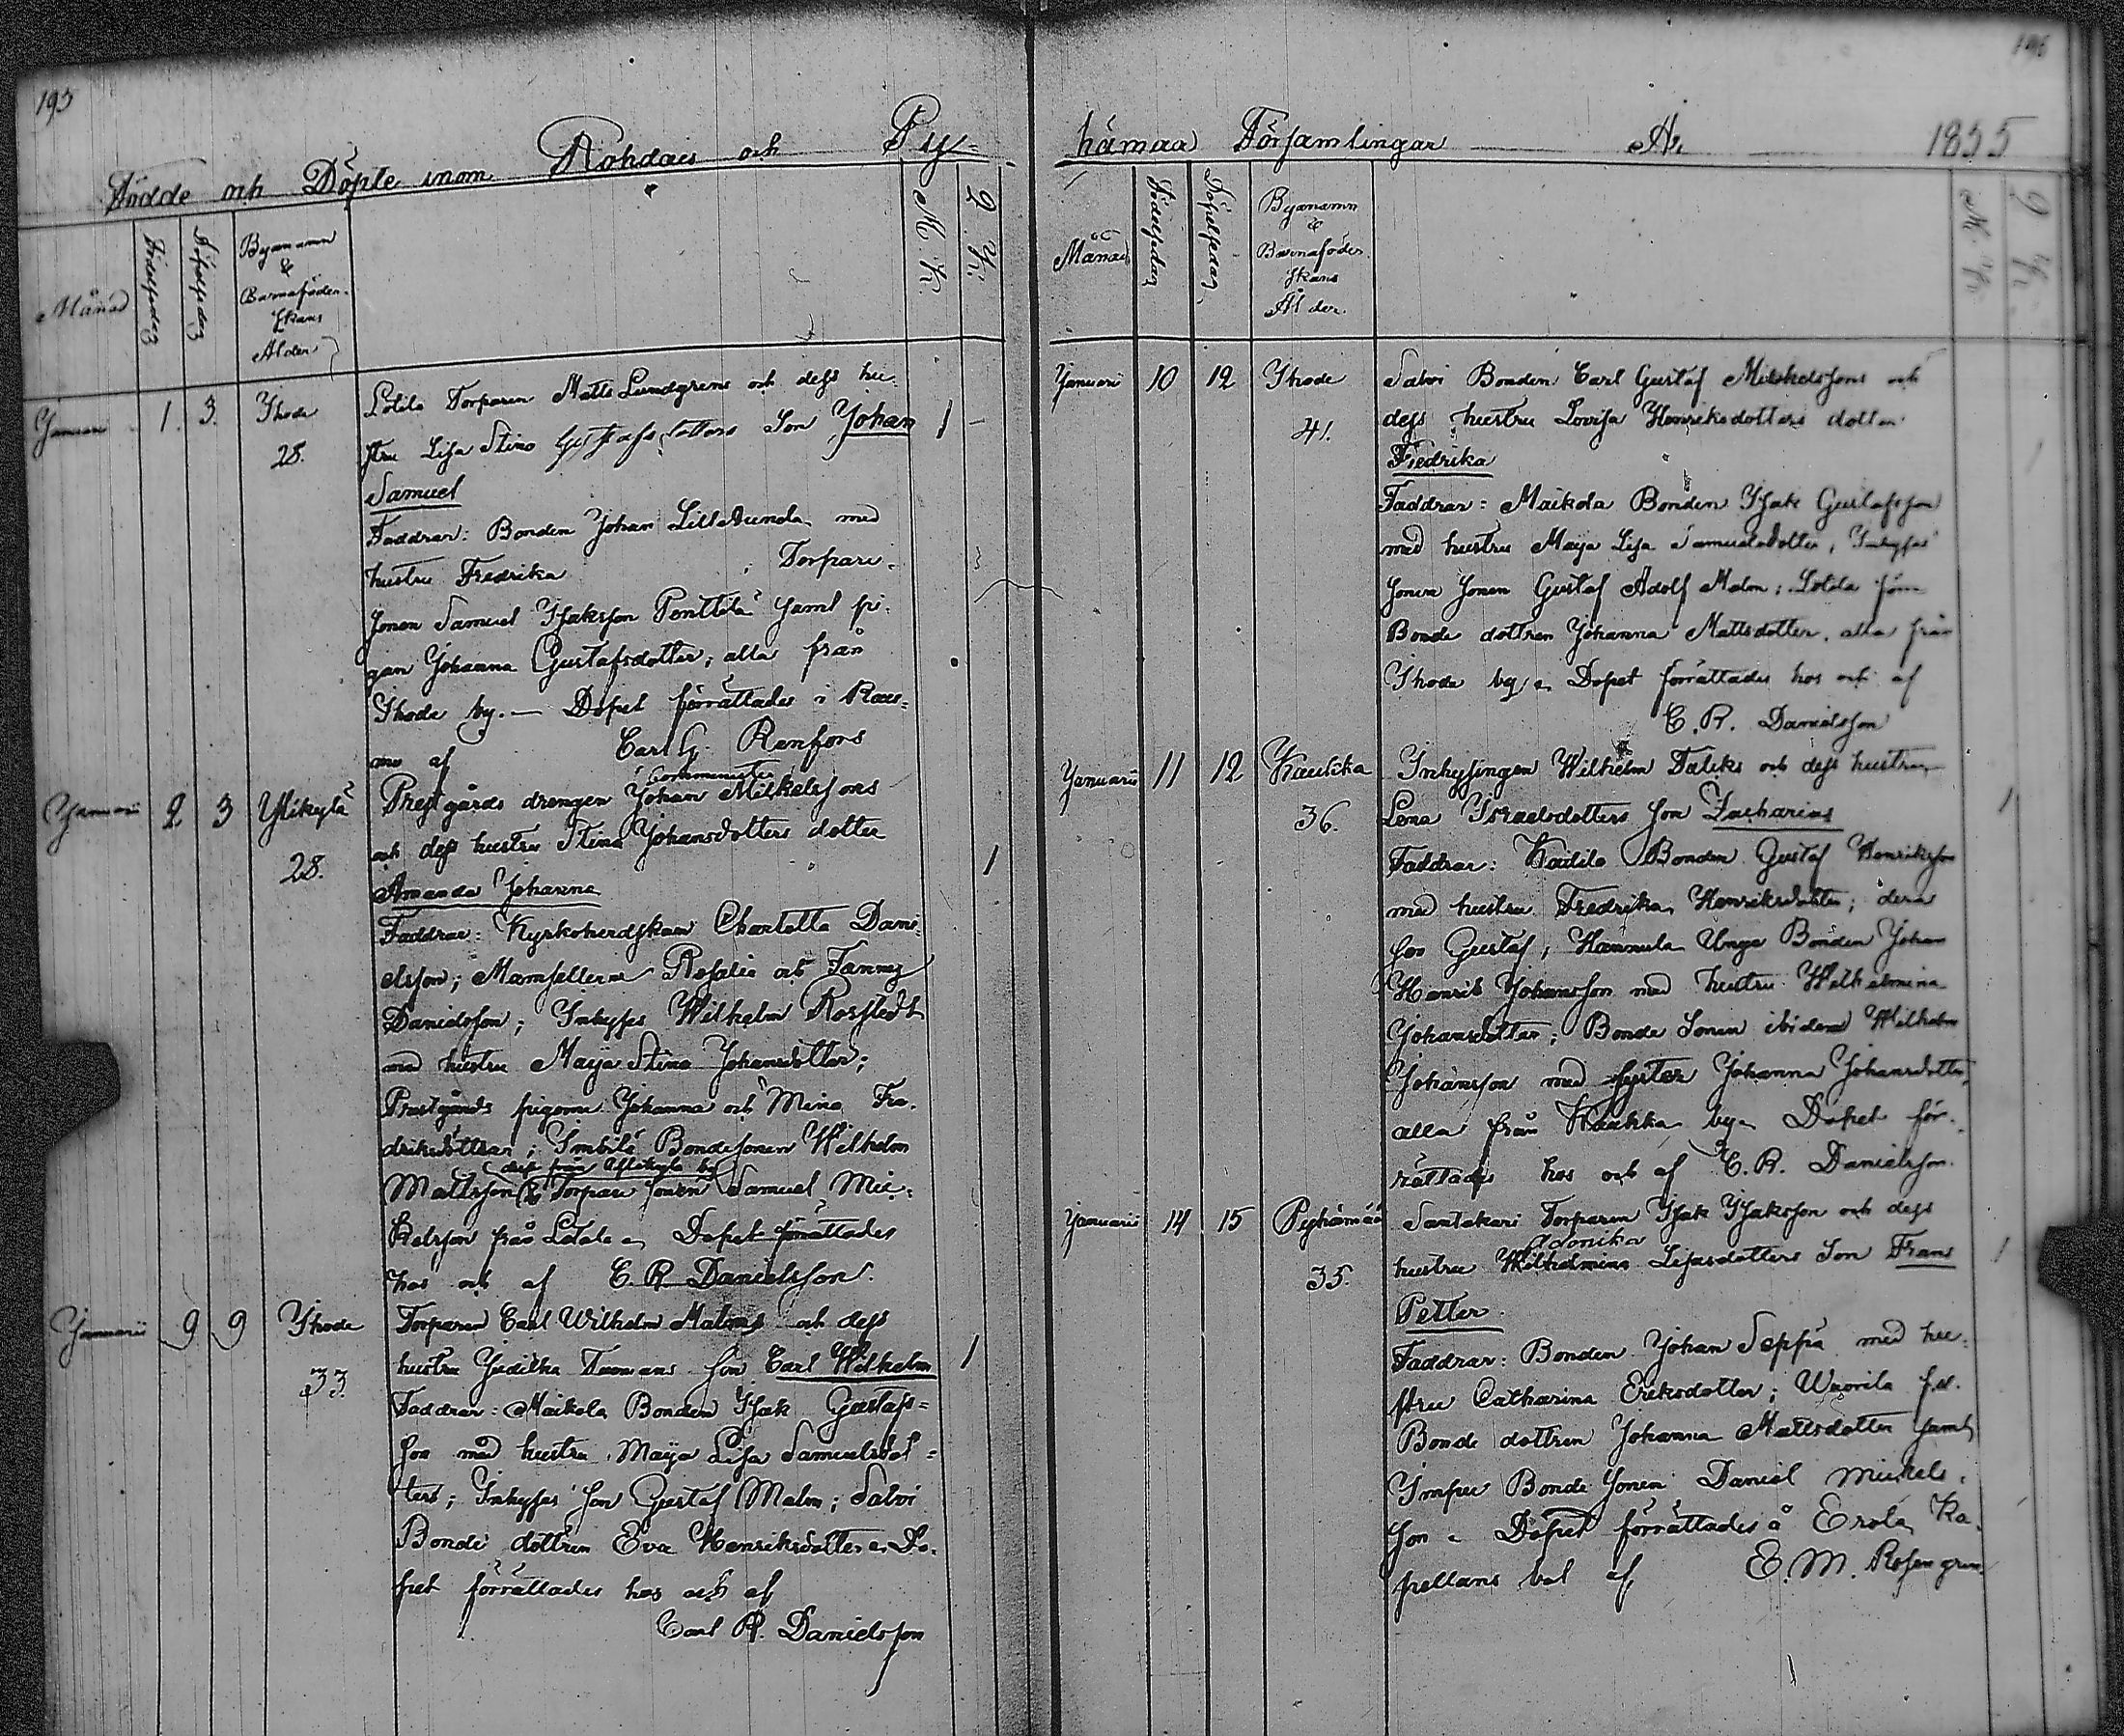 193
Födde och Döpte inom Rohdais och Py-
Månad
Födelsedag
Döpelsedag
Byanamn
&
Barnaföder-
skans
Ålder
M. K.
Q. K.
Januari 1. 3. Ihode Lotila Torparen Matts Lundgrens och dess hu-
28. stru Lisa Stina Gustafsdotters Son Johan 1 -
Samuel
Faddrar: Bonden Johan Lillsunda med
hustru Fredrika ; Torpare-
sonen Samuel Isaksson Penttilä samt pi-
gan Johanna Gustafsdotter; alla från
Ihode by. — Döpet förrättades i
af Carl G. Renfors
Communister
Januarii 2 3 Ylikylä Prestgårds drengen Johan Mikelssons
28. och dess hustru Stina Johansdotters dotter 1
Amanda Johanna
Faddrar: Kyrkoherdskan Charlotta Dani-
elsson; Mamsellerne Rosalie och Fanny
Danielsson; Inhyses Wilhelm Rosstedt
med hustru Maija Stina Johansdotter;
Prestgårds pigorna Johanna och Mina Fre-
driksdöttrar; Simbilä Bondesonen Wilhelm
Mattsson & Torpare sonen Samuel Mic-
kelsson från Lotala Dopet förrättades
hos och af C. R. Danielsson.
Januarii 9 9 Ihode Torparen Carl Wilhelm Malms och dess
33. hustru Juditha Tuomans Son Carl Wilhelm 1
Faddrar: Maikola Bonden Isak Gustafs=
son med hustru Maija Lisa Samuelsdot=
ter; Inhyses son Gustaf Malm; Salvi
Bonde dottren Eva Henriksdotter Do-
pet förrättades hos och af
Carl R. Danielsson
hämaa Församlingar År 1855
Månad
Födelsedag
Döpelsedag
Byanamn
&
Barnaföder-
skans
Ålder.
M. K.
Q K.
Januarii 10 12 Ihode Salvi Bonden Carl Gustaf Mickelssons och
41. dess hustru Lovisa Henriksdotters dotter
Fredrika
Faddrar: Maikola Bonden Isak Gustafsson
med hustru Maija Lisa Samuelsdotter, Inhyses
sonen Gustaf Adolf Malm; Lotila
Bonde dottren Johanna Mattsdotter, alla från
Ihode by Dopet förrättades hos och af
C. R. Danielsson
Januarii 11 12 Kaukka Inhysingen Wilhelm Falcks och dess hustru
36. Lena Israelsdotters son Zacharias 1
Faddrar: Kaitila Bonden Gustaf Henriksson
med hustru Fredrika Henriksdotter; deras
son Gustaf; Hannula Unge Bonden Johan
Henrik Johansson med hustru Wilhelmina
Johansdotter; Bonde Sonen ibidem Wilhelm
Johansson med syster Johanna Johansdotter,
alla från Kaukka by Döpet för-
rättades hos och af C. R. Danielsson.
Januarii 14 15 Pyhämaa Santakari Torparen Isak Isaksson och dess
hustru Wilhelmina Lisasdotters Son Frans 1
35. Petter
Faddrar: Bonden Johan Seppä med hu-
stru Catharina Eriksdotter; Wuorila f.d.
Bonde dottren Johanna Mattsdotter samt
Bonde sonen Daniel Mickels-
son Döpet förrättades å Erola Ka-
pellans bol af E. M. Rosengren